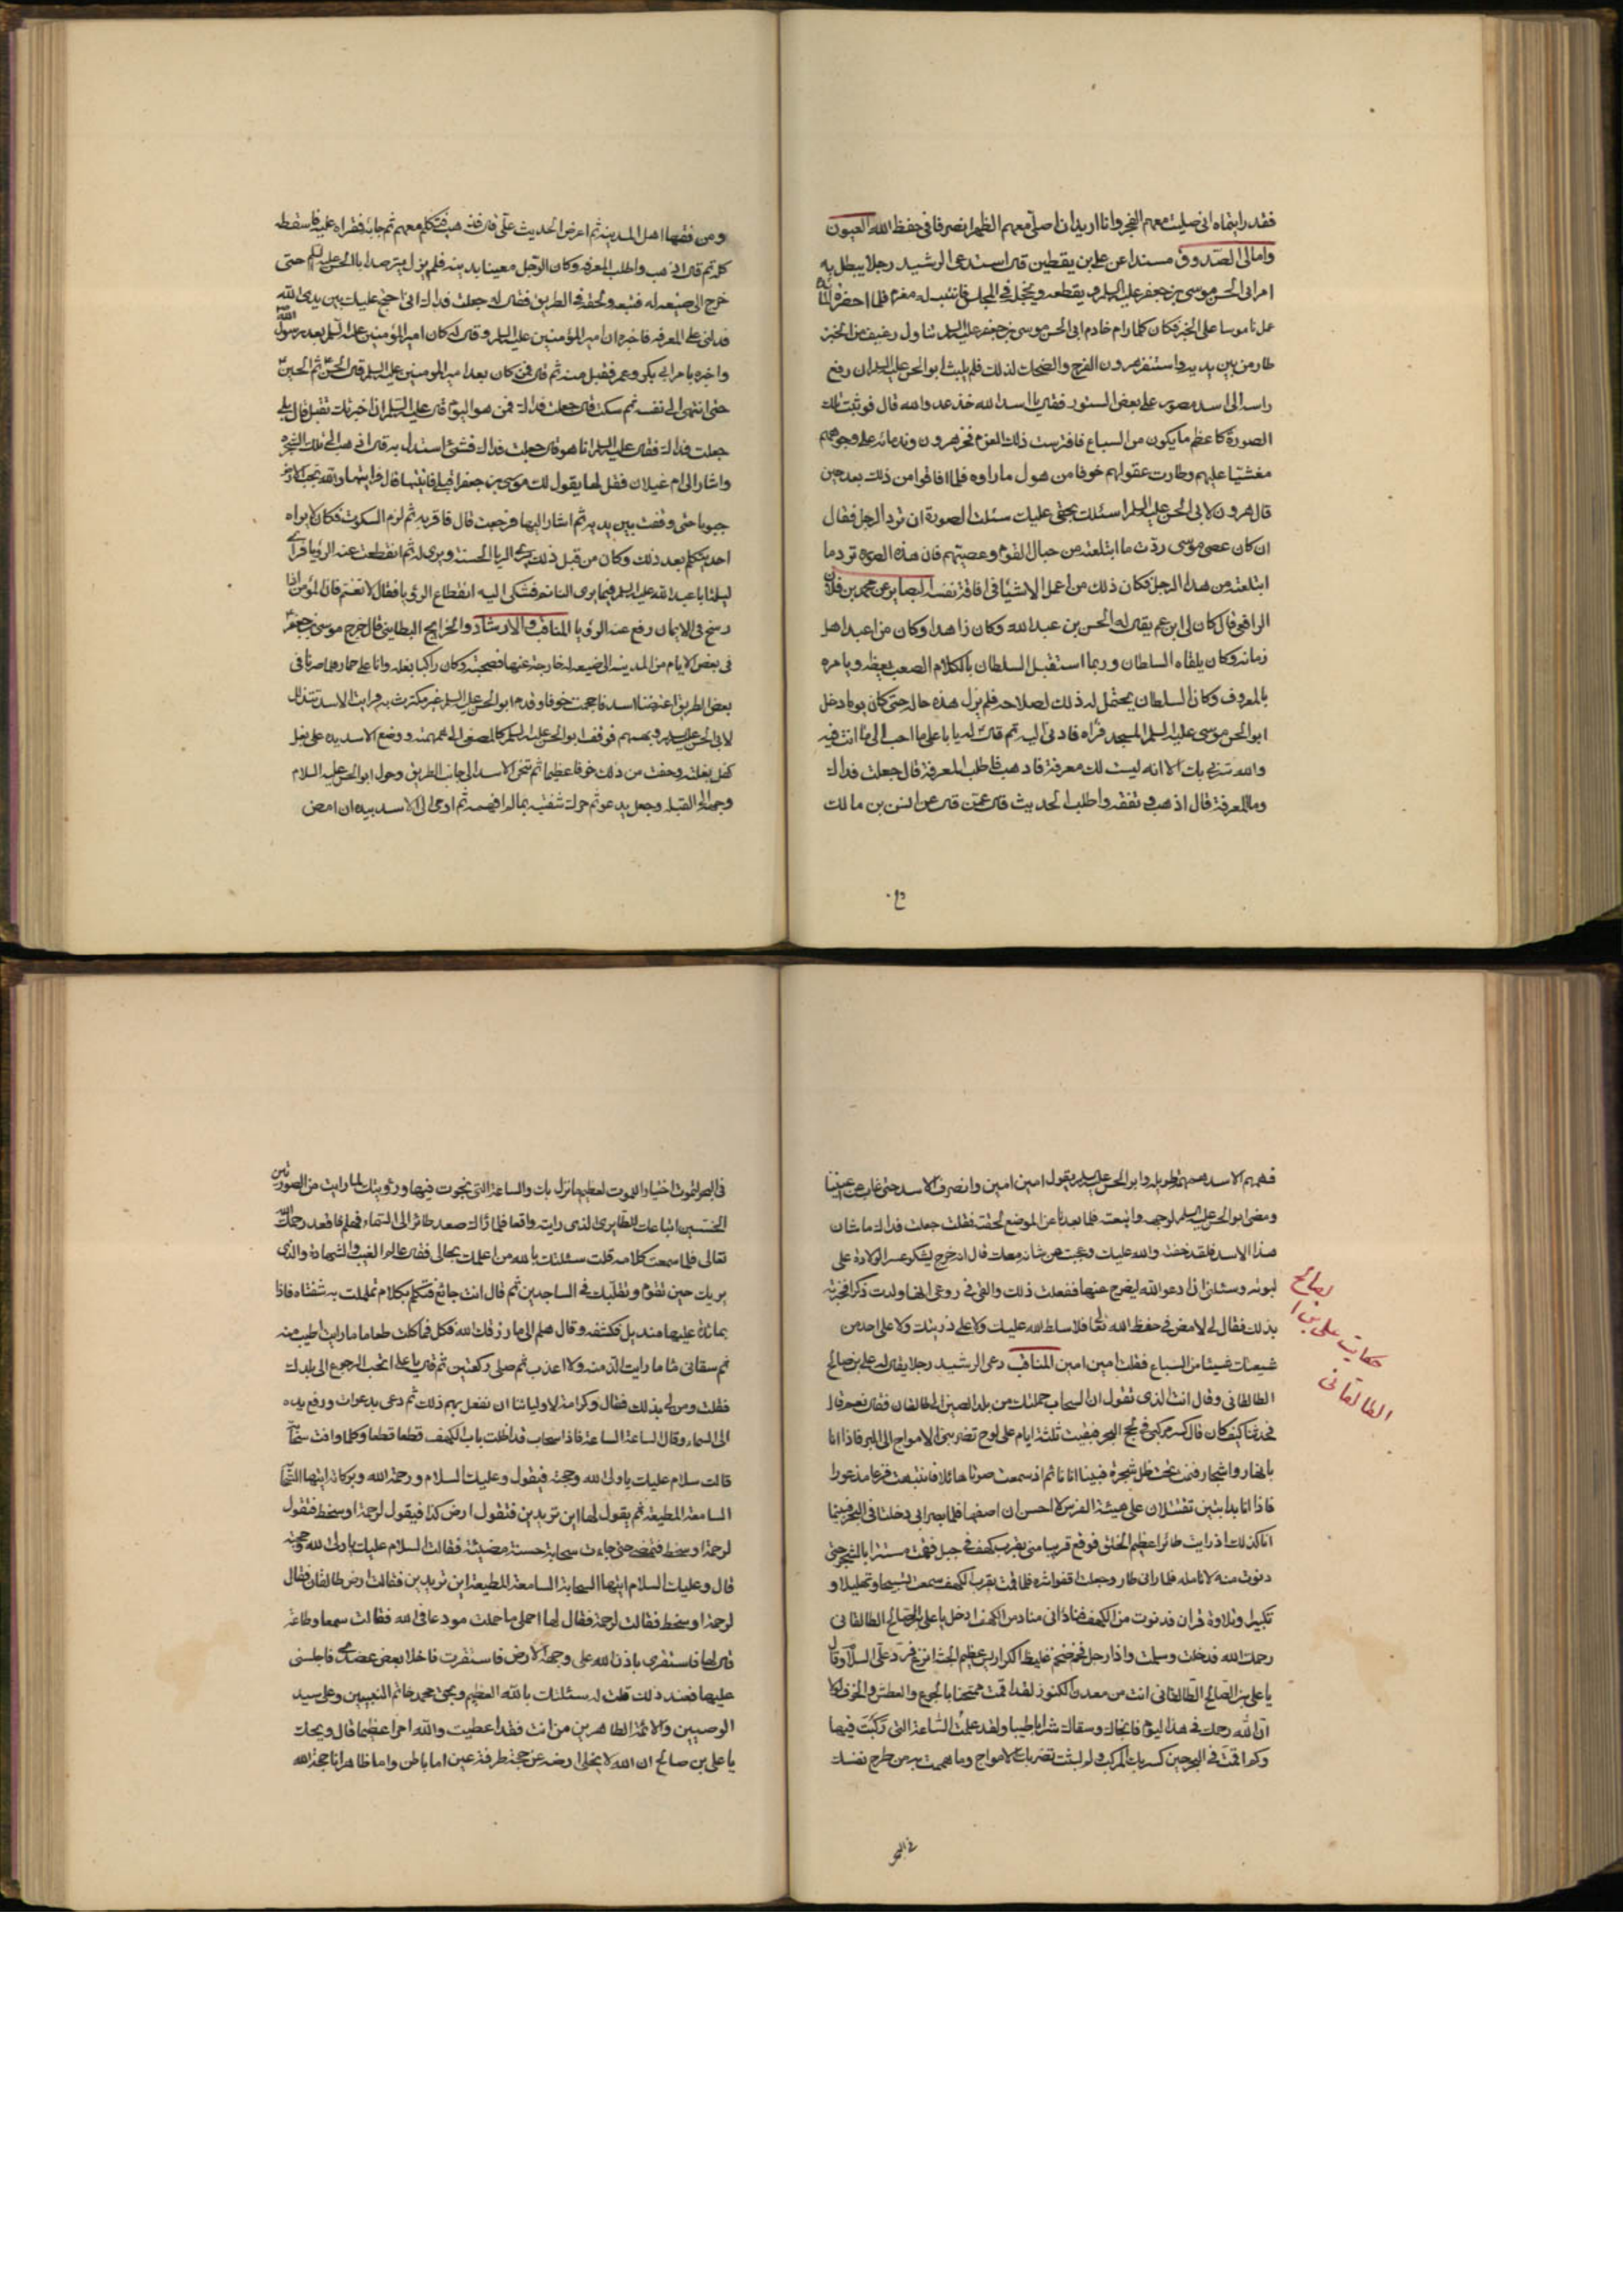 فقد رايتماه انى صليت معهم الفجر وانا اريد ان اصلى معهم الظهر انصرفا فى حفظ الله العيون
وامالى الصدوق مسندا عن على بن يقطين قال استدعى الرشيد رجلا يبطل به
امر ابى الحسن موسى بن جعفر عليه السلم ويقطعه ويخجله فى المجلس فانتدب له معزم فلما احضرت المائدة
عمل ناموسا على الخبز فكان كلما رام خادم ابى الحسن موسى بن جعفر عليه السلم تناول رغيف من الخبز
طار من بين يديه واستنفز هرون الفرح والضحك لذلك فلم يلبث ابو الحسن عليه السلم ان رفع
راسه الى اسد مصور على بعض الستور فقال يا اسد الله خذ عدو الله قال فوثبت تلك
الصورة كاعظم ما يكون من السباع فافترست ذلك المعزم فخر هرون وندمائه على وجوههم
مغشيا عليهم وطارت عقولهم خوفا من هول ما راوه فلما افاقوا من ذلك بعد حين
قال هرون لابى الحسن عليه السلم اسئلك بحقى عليك سئلت الصورة ان ترد الرجل فقال
ان كان عصى موسى ردت ما ابتلعته من حبال القوم وعصيهم فان هذه الصورة ترد ما
ابتلعته من هذا الرجل فكان ذلك من اعمل الاشيا فى افاقة نفسه البصاير عن محمد بن فلان
الرافعى قال كان لى ابن عم يقال له الحسن بن عبد الله وكان زاهدا وكان من اعبد اهل
زمانه وكان يلقاه السلطان وربما استقبل السلطان بالكلام الصعب يعظه ويامره
بالمعروف وكان السلطان يحتمل له ذلك لصلاحه فلم يزل هذه حاله حتى كان يوما دخل
ابو الحسن موسى عليه السلم المسجد فراه فادنى اليه ثم قال له يا با على ما احب الى ما انت فيه
والله سرنى بك الا انه ليست لك معرفة فاذهب فاطلب المعرفة قال جعلت فداك
وما المعرفة قال اذهب وتفقه واطلب الحديث قال عمن قال عن انس بن مالك
ومن فقهاء اهل المدينة ثم اعرض الحديث على قال فذهب فتكلم معهم ثم جائه فقراه عليه فاسقطه
كله ثم قال اذهب واطلب المعرفة وكان الرجل معينا بدينه فلم يزل يترصد ابا الحسن عليه السلم حتى
خرج الى ضيعه له فتبعه ولحقه فى الطريق فقال له جعلت فداك انى احتج عليك بين يدى الله
فدلنى على المعرفة فاخبره ان امير المؤمنين عليه السلم وقال له كان امير المؤمنين عليه السلم بعد رسول الله
واخبره بامر ابى بكر وعمر فقبل منه ثم قال فمن كان بعد امير المؤمنين عليه السلم قال الحسن ثم الحسين
حتى انتهى الى نفسه ثم سكت قال جعلت فداك فمن هو اليوم قال عليه السلم ان اخبرتك تقبل قال بلى
جعلت فداك فقال عليه السلم انا هو قال جعلت فداك فشئ استدل به قال اذهب الى تلك الشجرة
واشار الى ام غيلان فقل لها يقول لك موسى بن جعفر اقبلى فاتيتها قال فرايتها والله تجب الارض
جبوبا حتى وقفت بين يديه ثم اشار اليها فرجعت قال فاقر به ثم لزم السكوت فكان لا يراه
احد يتكلم بعد ذلك وكان من قبل ذلك يرى الريا الحسنة ويرى له ثم انقطعت عنه الرؤيا فراى
ليلة ابا عبد الله عليه السلم فيما يرى النائم فشكى اليه انقطاع الرؤيا فقال لا تغتم فان المؤمن اذا
رسخ فى الايمان رفع عنه الرؤيا المناقب والارشاد والخرايج البطاينى قال خرج موسى بن جعفر
فى بعض الايام من المدينة الى ضيعه له خارجة عنها فصحبته وكان راكبا بغله وانا على حمار فلما صرنا فى
بعض الطريق اعترضنا اسد فاحجمت خوفا وقدم ابو الحسن عليه السلم غير مكترث به فرايت الاسد يتذلل
لابى الحسن عليه السلم ويهمهم فوقف ابو الحسن عليه السلم كالمصغى الى همهمته ووضع الاسد يده على
كفل بغلته وخفت من ذلك خوفا عظيما ثم تنحى الاسد الى جانب الطريق وحول ابو الحسن عليه السلام
وجهه الى القبلة وجعل يدعو ثم حرك شفتيه بما لم افهمه ثم اومى الى الاسد بيده ان امض
فهمهم الاسد همهمة طويله وابو الحسن عليه السلم يقول امين امين وانصرف الاسد حتى غاب عن اعيننا
ومضى ابو الحسن عليه السلم لوجهه واتبعته فلما بعدنا عن الموضع لحقته فقلت جعلت فداك ما شان
هذا الاسد فلقد خفته والله عليك وعجبت من شانه معك قال انه خرج يشكو عسر الولادة على
لبوته وسئلنى ان ادعو الله ليفرج عنها ففعلت ذلك والقى فى روعى انها ولدت ذكرا فخبرته
بذلك فقال لى امض فى حفظ الله فلا سلط الله عليك ولا على ذريتك ولا على احد من
شيعتك شيئا من السباع فقلت امين امين المناقب دعى الرشيد رجلا يقال له على بن صالح
الطالقانى وقال انت الذى تقول ان السحاب حملتك من بلد الصين الى طالقان فقال نعم قال
فحدثنا كيف كان قال كسر مركبى فى لجج البحر فبقيت ثلثة ايام على لوح تضربنى الامواج الى البر فاذا انا
بانهار واشجار فنمت تحت ظل شجرة فبينا انا نائم اذ سمعت صوتا هائلا فانتبهت فزعا مذعورا
فاذا انا بدابتين تقتتلان على هيئة الفرس لا احسن ان اصفهما فلما بصرا بى دخلتا فى البحر فبينما
انا كذلك اذ رايت طائرا عظيم الخلق فوقع قريبا منى بقرب كهف فى جبل فقمت مستترا بالشجر حتى
دنوت منه لاتامله فلما رانى طار وجعلت اقفو اثره فلما قمت بقرب الكهف سمعت تسبيحا وتهليلا و
تكبيرا وتلاوة قران فدنوت من الكهف فنادانى مناد من الكهف ادخل يا على بن الصالح الطالقانى
رحمك الله فدخلت وسلمت واذا رجل فخم ضخم غليظ الكراديس عظيم الجثة انزع فرد على السلام وقال
يا على بن الصالح الطالقانى انت من معدن الكنوز لقد اقمت ممتحنا بالجوع والعطش والخوف لولا
ان الله رحمك فى هذا اليوم فانجاك وسقاك شرابا طيبا ولقد علمت الساعة التى ركبت فيها
وكم اقمت فى البحر حين كسر بك المركب وكم لبثت تضربك الامواج وما هممت به من طرح نفسك
فى البحر
حكايت على بن ا
لصالح
الطالقانى
فى البحر لتموت اختيارا للموت لعظيم ما نزل بك والساعة التى نجوت فيها ورؤيتك لما رايت من الصورتين
الحسنتين واتباعك للطائر الذى رايته واقعا فلما راك صعد طائرا الى السماء فهلم فاقعد رحمك الله
تعالى فلما سمعت كلامه قلت سئلتك بالله من اعلمك بحالى فقال عالم الغيب والشهادة والذى
يريك حين تقوم وتقلبك فى الساجدين ثم قال انت جائع فتكلم بكلام تململت به شفتاه فاذا
بمائدة عليها منديل فكشفه وقال هلم الى ما رزقك الله فكل فاكلت طعاما ما رايت اطيب منه
ثم سقانى ماء ما رايت الذ منه ولا اعذب ثم صلى ركعتين ثم قال يا على اتحب الرجوع الى بلدك
فقلت ومن لى بذلك فقال وكرامة لاوليائنا ان نفعل بهم ذلك ثم دعى بدعوات ورفع يده
الى السماء وقال الساعة الساعة فاذا سحاب قد اظلت باب الكهف قطعا قطعا وكلما وافت سحابة
قالت سلام عليك يا ولى الله وحجته فيقول وعليك السلام ورحمة الله وبركاته ايتها السحابة
السامعة المطيعة ثم يقول لها اين تريدين فتقول ارض كذا فيقول لرحمة او سخط فتقول
لرحمة او سخط فتمضى حتى جاءت سحابة حسنة مضيئة فقالت السلام عليك يا ولى الله وحجته
قال وعليك السلام ايتها السحابة السامعة المطيعة اين تريدين فقالت ارض طالقان فقال
لرحمة او سخط فقالت لرحمة فقال لها احملى ما حملت مودعا فى الله فقالت سمعا وطاعة
قال لها فاستقرى باذن الله على وجه الارض فاستقرت فاخذ بعض عضدى فاجلسنى
عليها فعند ذلك قلت له سئلتك بالله العظيم وبحق محمد خاتم النبيين وعلى سيد
الوصيين والائمة الطاهرين من انت فقد اعطيت والله امرا عظيما قال ويحك
يا على بن صالح ان الله لا يخلى ارضه عن حجته طرفة عين اما باطن واما ظاهر انا حجة الله